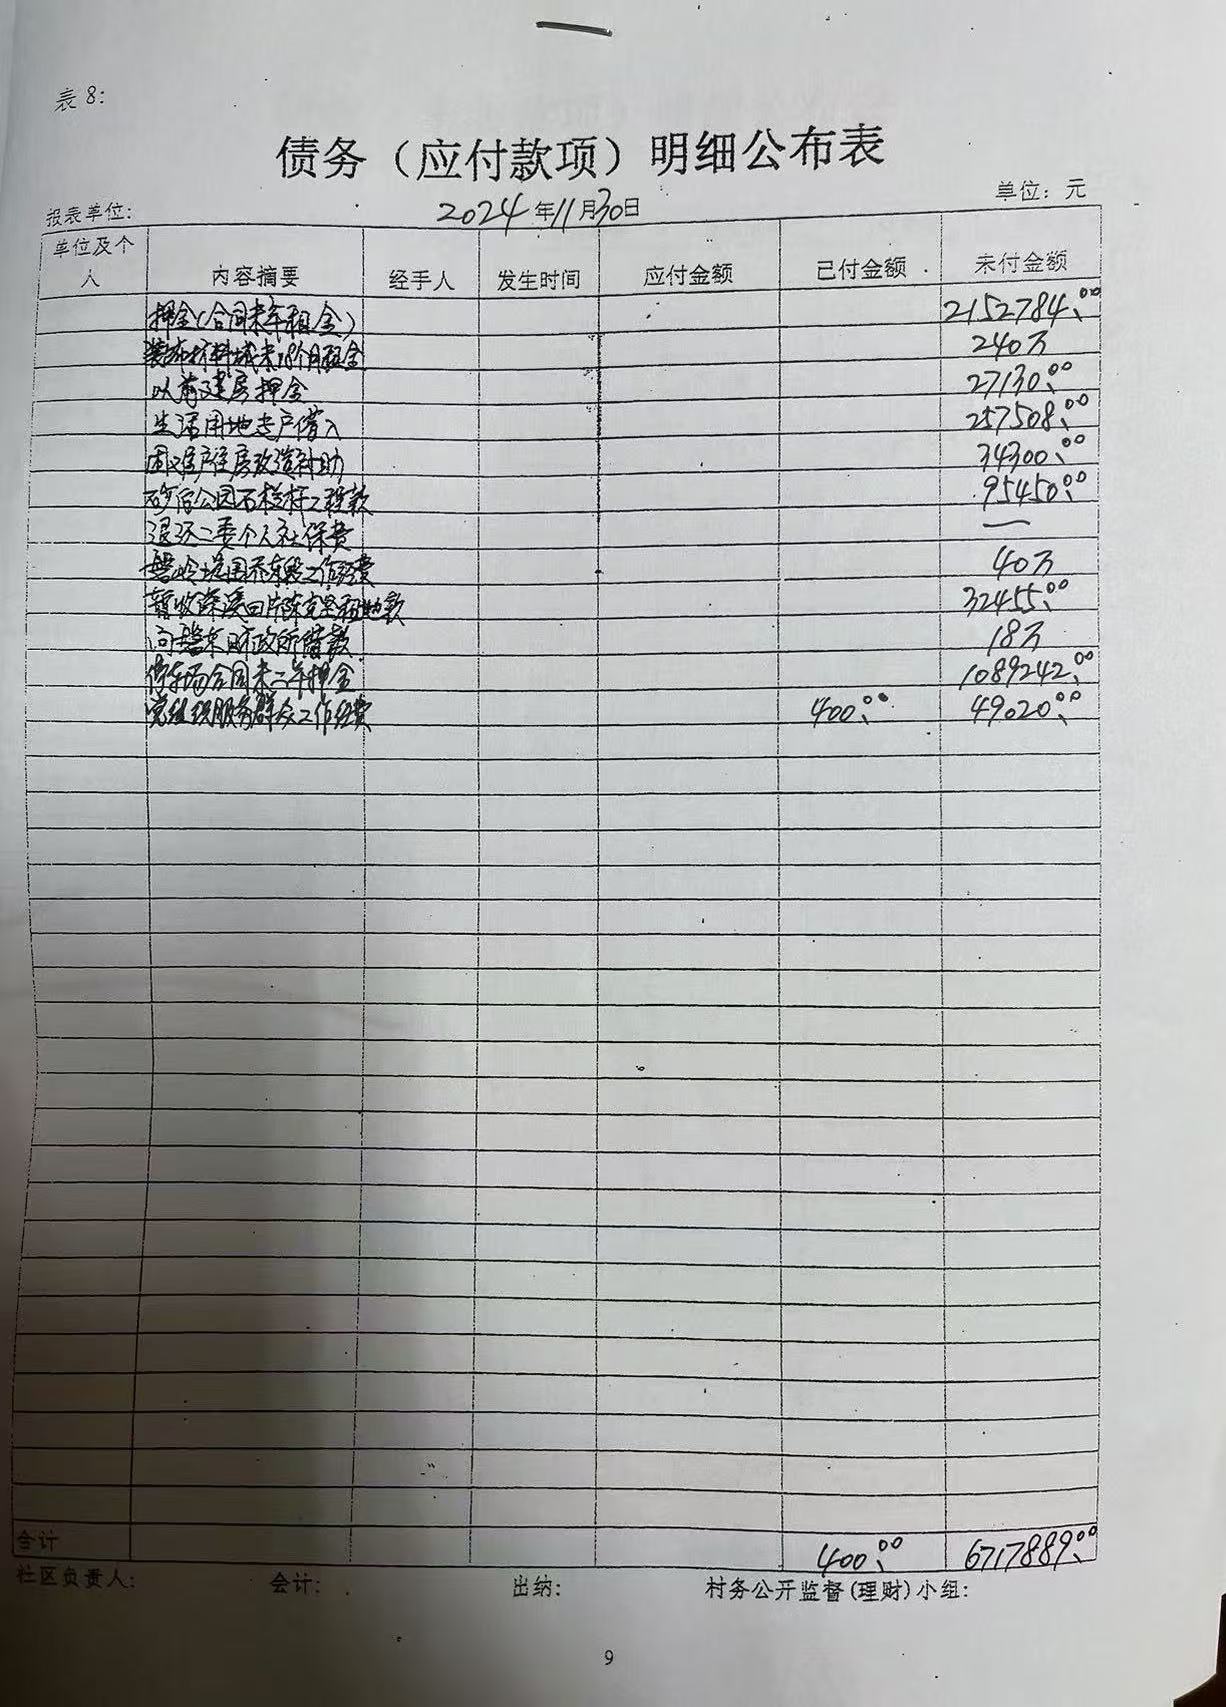 表8:
债务（应付款项）明细公布表
报表单位: 2024年11月30日 单位：元
单位及个人 内容摘要 经手人 发生时间 应付金额 已付金额 未付金额
押金(合同末年租金) 2152784.00
装饰材料城末18个月租金 240万
以前建房押金 27130.00
生活用地专户借入 257508.00
困难户住房改造补助 34300.00
公园石栏杆工程款 95450.00
退还二委个人社保费 —
工作经费 40万
暂收 租地款 32455.00
向 东财政所借款 18万
停车场合同末二年押金 1089242.00
党组织服务群众工作经费 400.00 49020.00
合计 400.00 6717889.00
社区负责人: 会计: 出纳: 村务公开监督(理财)小组:
9